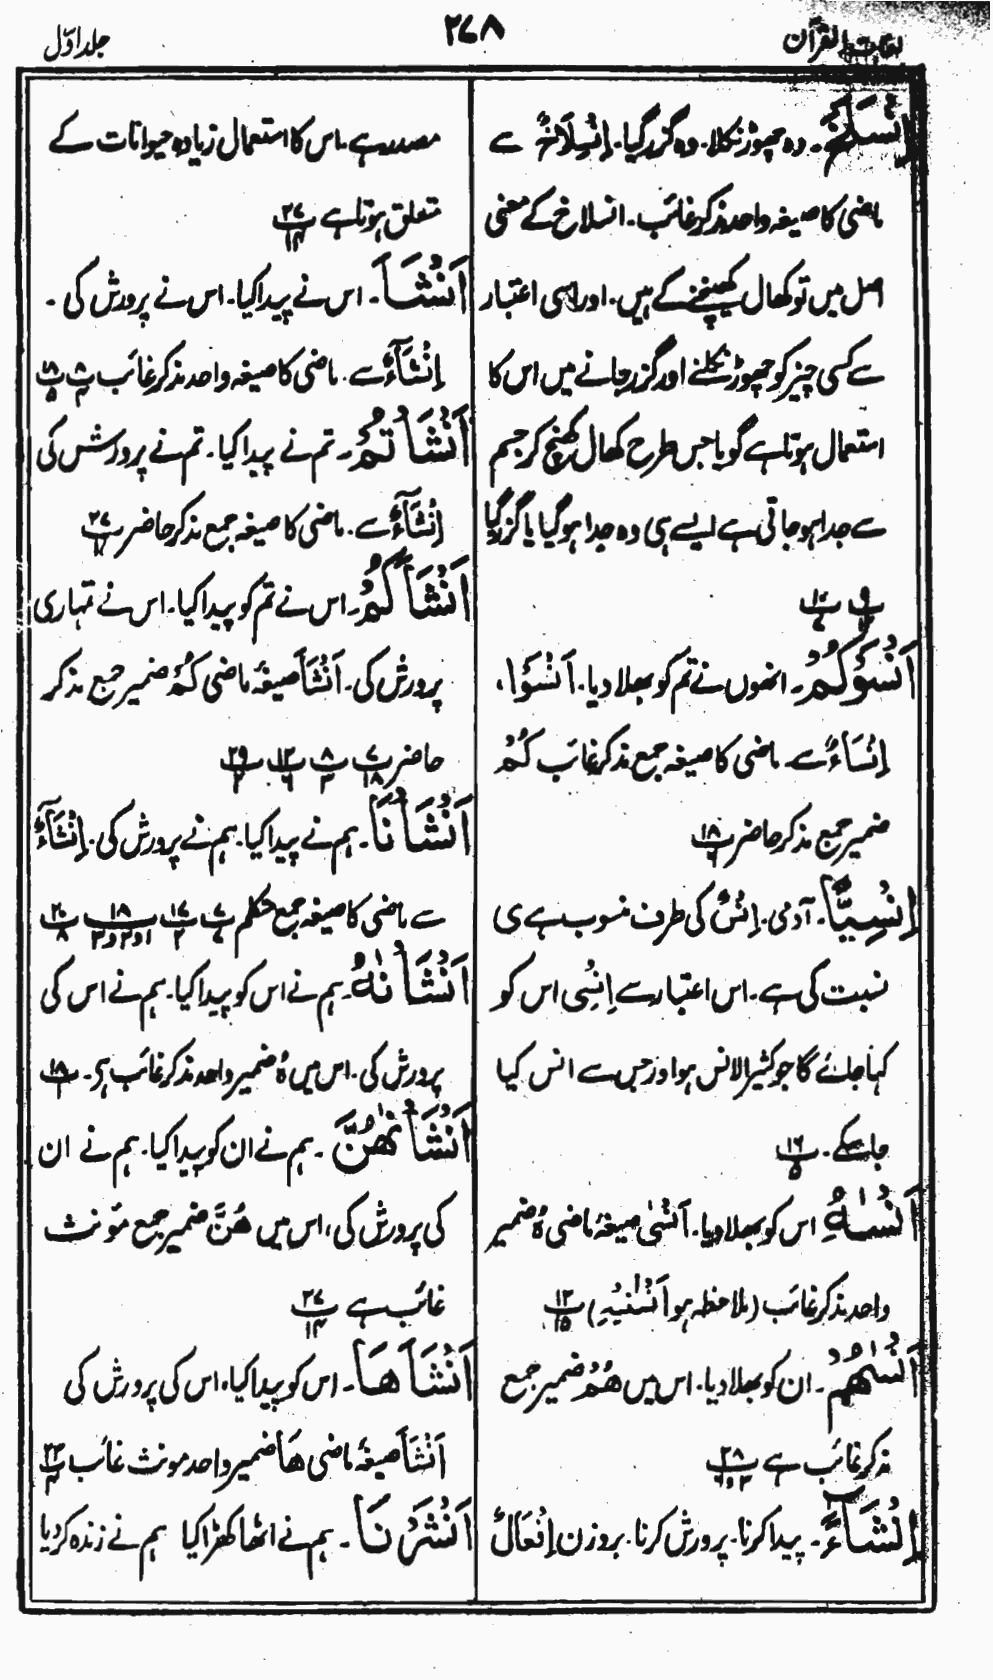 لغات القرآن
۲۷۸
جلد اوّل
اِنْسَلَخَ۔ وہ چھوڑ نکلا۔ وہ گزر گیا۔ اِنْسِلَاخٌ سے
ماضی کا صیغہ واحد مذکر غائب۔ انسلاخ کے معنی
اصل میں تو کھال کھینچنے کے ہیں۔ اور اسی اعتبار
سے کسی چیز کو چھوڑ نکلنے اور گزر جانے میں اس کا
استعمال ہوتا ہے گویا جس طرح کھال کھنچ کر جسم
سے جدا ہو جاتی ہے ایسے ہی وہ جدا ہو گیا یا گزر گیا
پ۹ پ۱۰
اَنْسَوْکُمْ۔ انھوں نے تم کو بھلا دیا۔ اَنْسَوْا،
اِنْسَاءٌ سے۔ ماضی کا صیغہ جمع مذکر غائب کُمْ
ضمیر جمع مذکر حاضر پ۱۸ ۶
اِنْسِیًّا۔ آدمی۔ اِنْسٌ کی طرف منسوب ہے ی
نسبت کی ہے۔ اس اعتبار سے اِنْسِی اس کو
کہا جائے گا جو کثیر الانس ہو اور جس سے انس کیا
جا سکے۔ پ۱۶ ۵
اَنْسٰہُ اس کو بھلا دیا۔ اَنْسٰی صیغۂ ماضی ہُ ضمیر
واحد مذکر غائب (ملاحظہ ہو اَنْسٰنِیْہِ) پ۱۲ ۱۵
اَنْسٰہُمْ۔ ان کو بھلا دیا۔ اس میں ھُمْ ضمیر جمع
مذکر غائب ہے پ۲۸ ۲و۶
اِنْشَاءً۔ پیدا کرنا۔ پرورش کرنا۔ بروزن اِفْعَالٌ
مصدر ہے۔ اس کا استعمال زیادہ حیوانات کے
متعلق ہوتا ہے پ۲۷ ۱۴
اَنْشَاَ۔ اس نے پیدا کیا۔ اس نے پرورش کی۔
اِنْشَآءٌ سے۔ ماضی کا صیغہ واحد مذکر غائب پ۸ ۴ پ۱۸ ۵
اَنْشَاْتُمْ۔ تم نے پیدا کیا۔ تم نے پرورش کی
اِنْشَآءٌ سے۔ ماضی کا صیغہ جمع مذکر حاضر پ۲۷
اَنْشَاَکُمْ۔ اس نے تم کو پیدا کیا۔ اس نے تمہاری
پرورش کی۔ اَنْشَاَ صیغۂ ماضی کُمْ ضمیر جمع مذکر
حاضر پ۷ ۱۸ پ۸ ۳ پ۱۲ ۶ پ۲۹ ۲
اَنْشَاْنَا۔ ہم نے پیدا کیا۔ ہم نے پرورش کی۔ اِنْشَآءٌ
سے ماضی کا صیغہ جمع متکلم پ۷ ۷ پ۱۷ ۲ پ۱۸ ۱و۲و۳ پ۲۰ ۸
اَنْشَاْنٰہُ۔ ہم نے اس کو پیدا کیا۔ ہم نے اس کی
پرورش کی۔ اس میں ہُ ضمیر واحد مذکر غائب ہے۔ پ۱۸ ۱
اَنْشَاْنٰھُنَّ۔ ہم نے ان کو پیدا کیا۔ ہم نے ان
کی پرورش کی، اس میں ھُنَّ ضمیر جمع مؤنث
غائب ہے پ۲۷ ۱۴
اَنْشَاَھَا۔ اس کو پیدا کیا، اس کی پرورش کی
اَنْشَاَ صیغۂ ماضی ھَا ضمیر واحد مونث غائب پ۲۳ ۴
اَنْشَرْنَا۔ ہم نے اٹھا کھڑا کیا ہم نے زندہ کر دیا